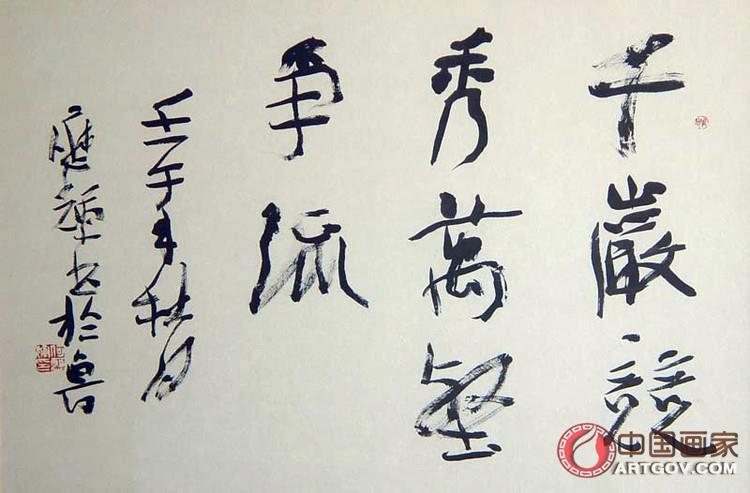 千巖競
秀萬壑
爭流
壬午年秋月
书於魯
中国画家
ARTGOV.COM